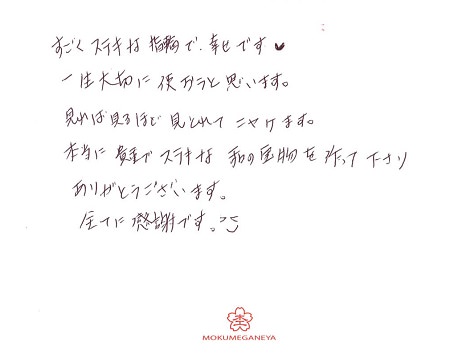 すごくステキな指輪で、幸せです♥
一生大切に使おうと思います。
見れば見るほど見とれてニヤけます。
本当に素敵でステキな私の宝物を作って下さり
ありがとうございます。
全てに感謝です。
MOKUMEGANEYA